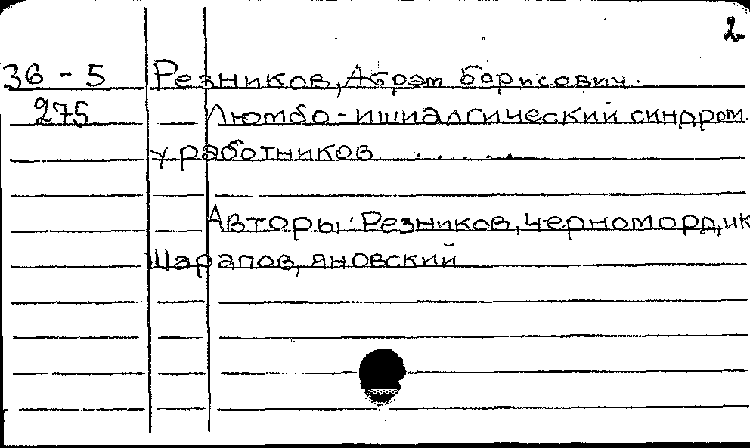 2
36-5 Резников, Абрам Борисович.
275 Люмбо-ишиалгический синдром
у работников .....
Авторы: Резников, Черномордик
Шарапов, Яновский